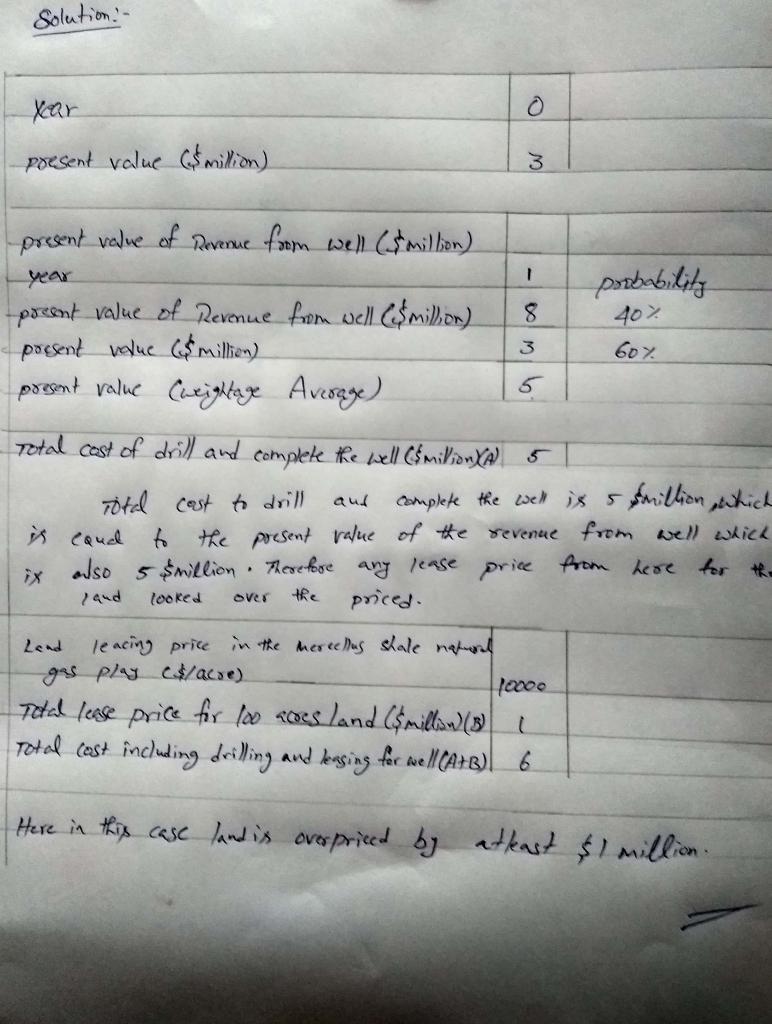 Solution:-
Year 0
present value ($million) 3
present value of Revenue from well ($million)
year 1 probability
present value of Revenue from well ($million) 8 40%
present value ($million) 3 60%
present value (weightage Average) 5
Total cost of drill and complete the well ($million)(A) 5
Total cost to drill and complete the well is 5 $million, which
is equal to the present value of the revenue from well which
is also 5 $million. Therefore any lease price from here for the
land looked over the priced.
Land leacing price in the mercellus shale natural
gas play ($/acre) 10000
Total lease price for 100 acres land ($million)(B) 1
Total cost including drilling and leasing for well (A+B) 6
Here in this case land is overpriced by atleast $1 million.